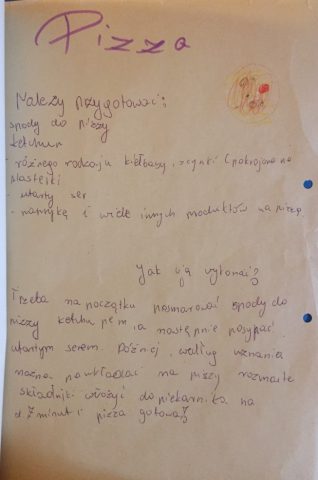 Pizza
Należy przygotować:
spody do pizzy
ketchup
- różnego rodzaju kiełbasy, szynki (pokrojone na
plasterki
- utarty ser
- paprykę i wiele innych produktów na pizzę.
Jak ją wykonać?
Trzeba na początku posmarować spody do
pizzy ketchupem, a następnie posypać
utartym serem. Później, według uznania
można nawkładać na pizzy rozmaite
składniki włożyć do piekarnika na
ok 7 minut i pizza gotowa